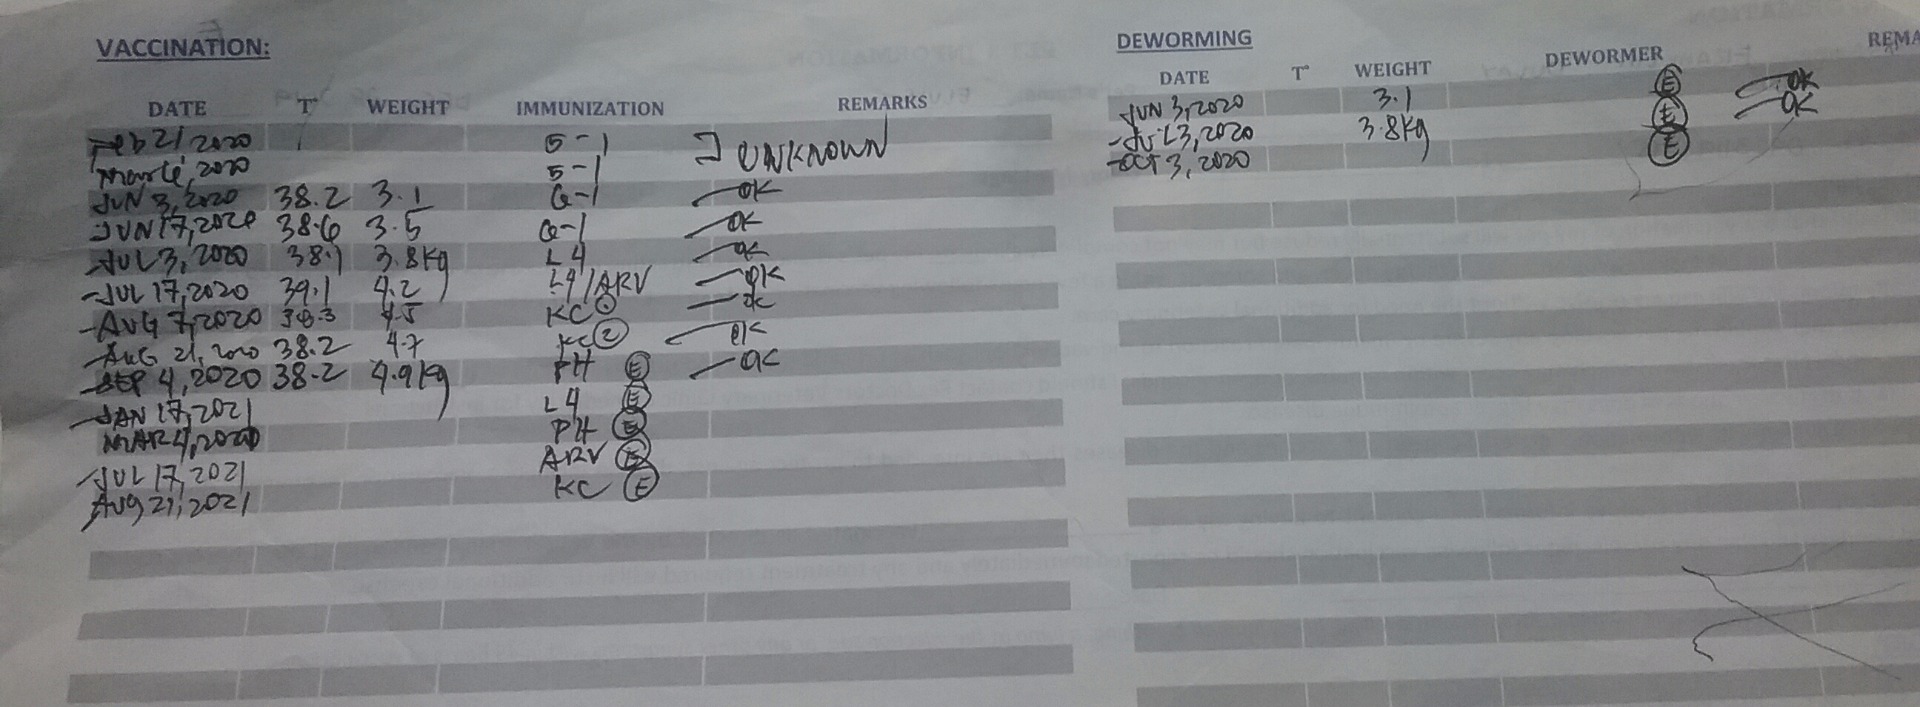 VACCINATION:
DATE T° WEIGHT IMMUNIZATION REMARKS
Feb 21 2020 5-1 UNKNOWN
2020 5-1
JUN 3, 2020 38.2 3.1 6-1 OK
JUN 17, 2020 38.6 3.5 6-1 OK
JUL 3, 2020 38.1 3.8kg L4 OK
JUL 17, 2020 39.1 4.2 L4/ARV OK
AUG 7, 2020 38.3 4.5 KC 1 OK
AUG 21, 2020 38.2 4.7 KC 2 OK
SEP 4, 2020 38.2 4.9kg PH E OK
JAN 17, 2021 L4 E
MAR 4, PH E
JUL 17, 2021 ARV E
AUG 21, 2021 KC E
DEWORMING
DATE T° WEIGHT DEWORMER REMA
JUN 3, 2020 3.1 E OK
JUL 3, 2020 3.8kg E OK
OCT 3, 2020 E